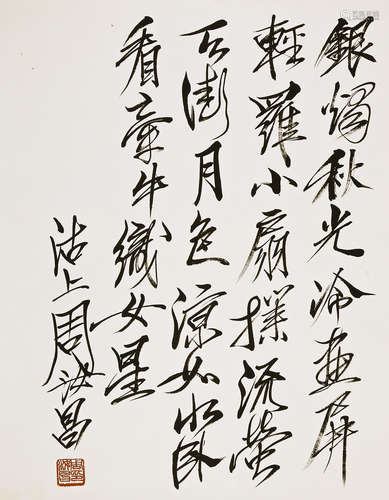 銀燭秋光冷畫屏
輕羅小扇撲流螢
天街月色涼如水臥
看牽牛織女星
沽上周汝昌